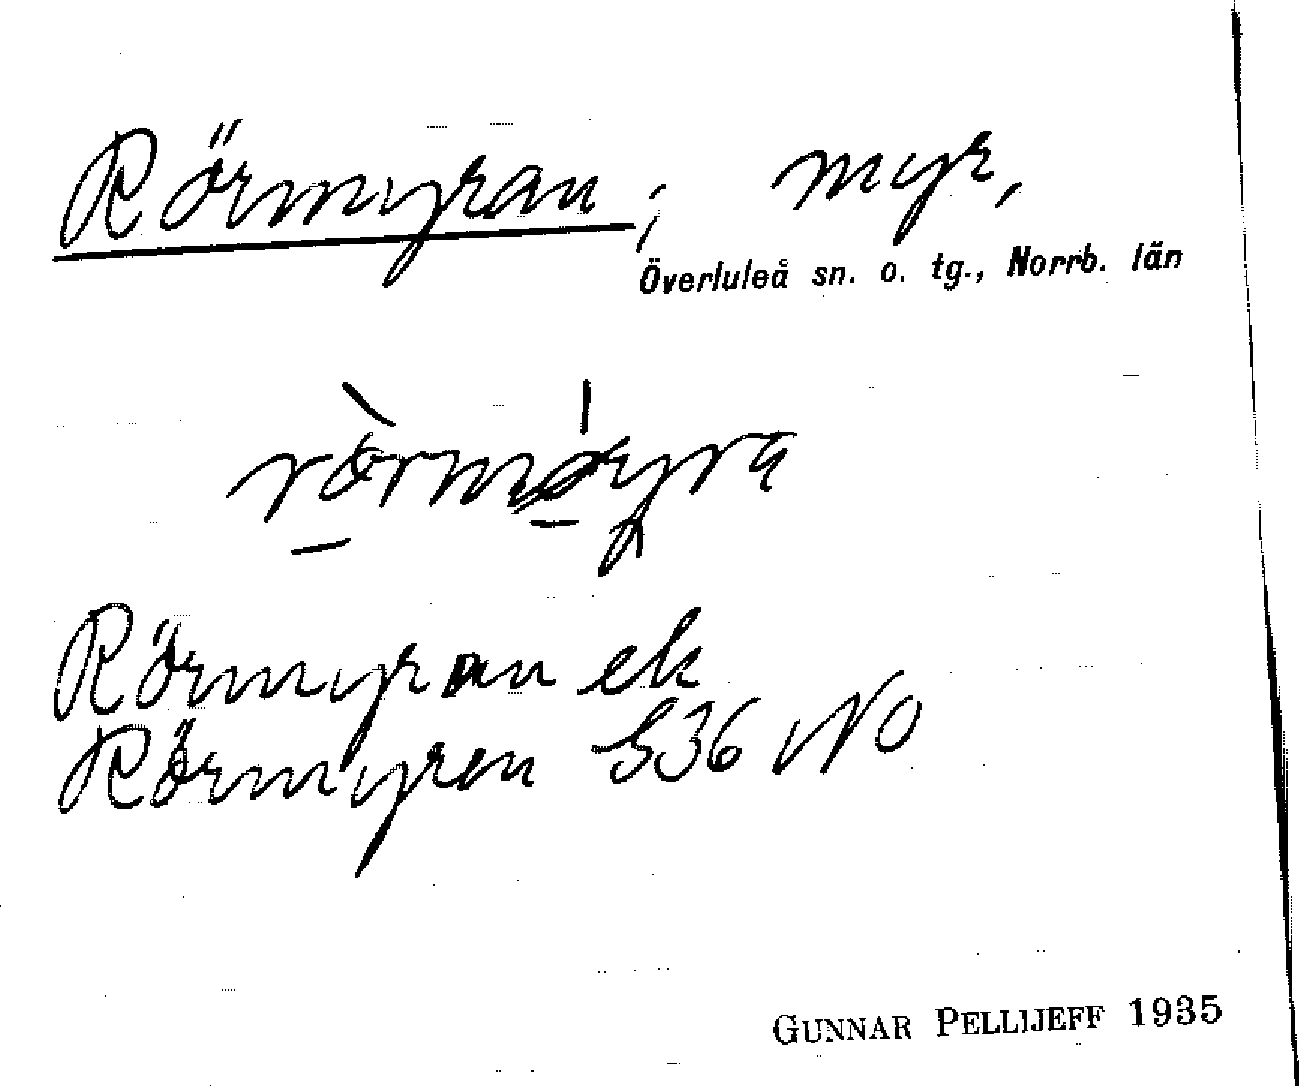 Rörmyran; myr,
Överluleå sn. o. tg., Norrb. län
Rörmyran ek
Rörmyren S36 NO
GUNNAR PELLIJEFF 1935